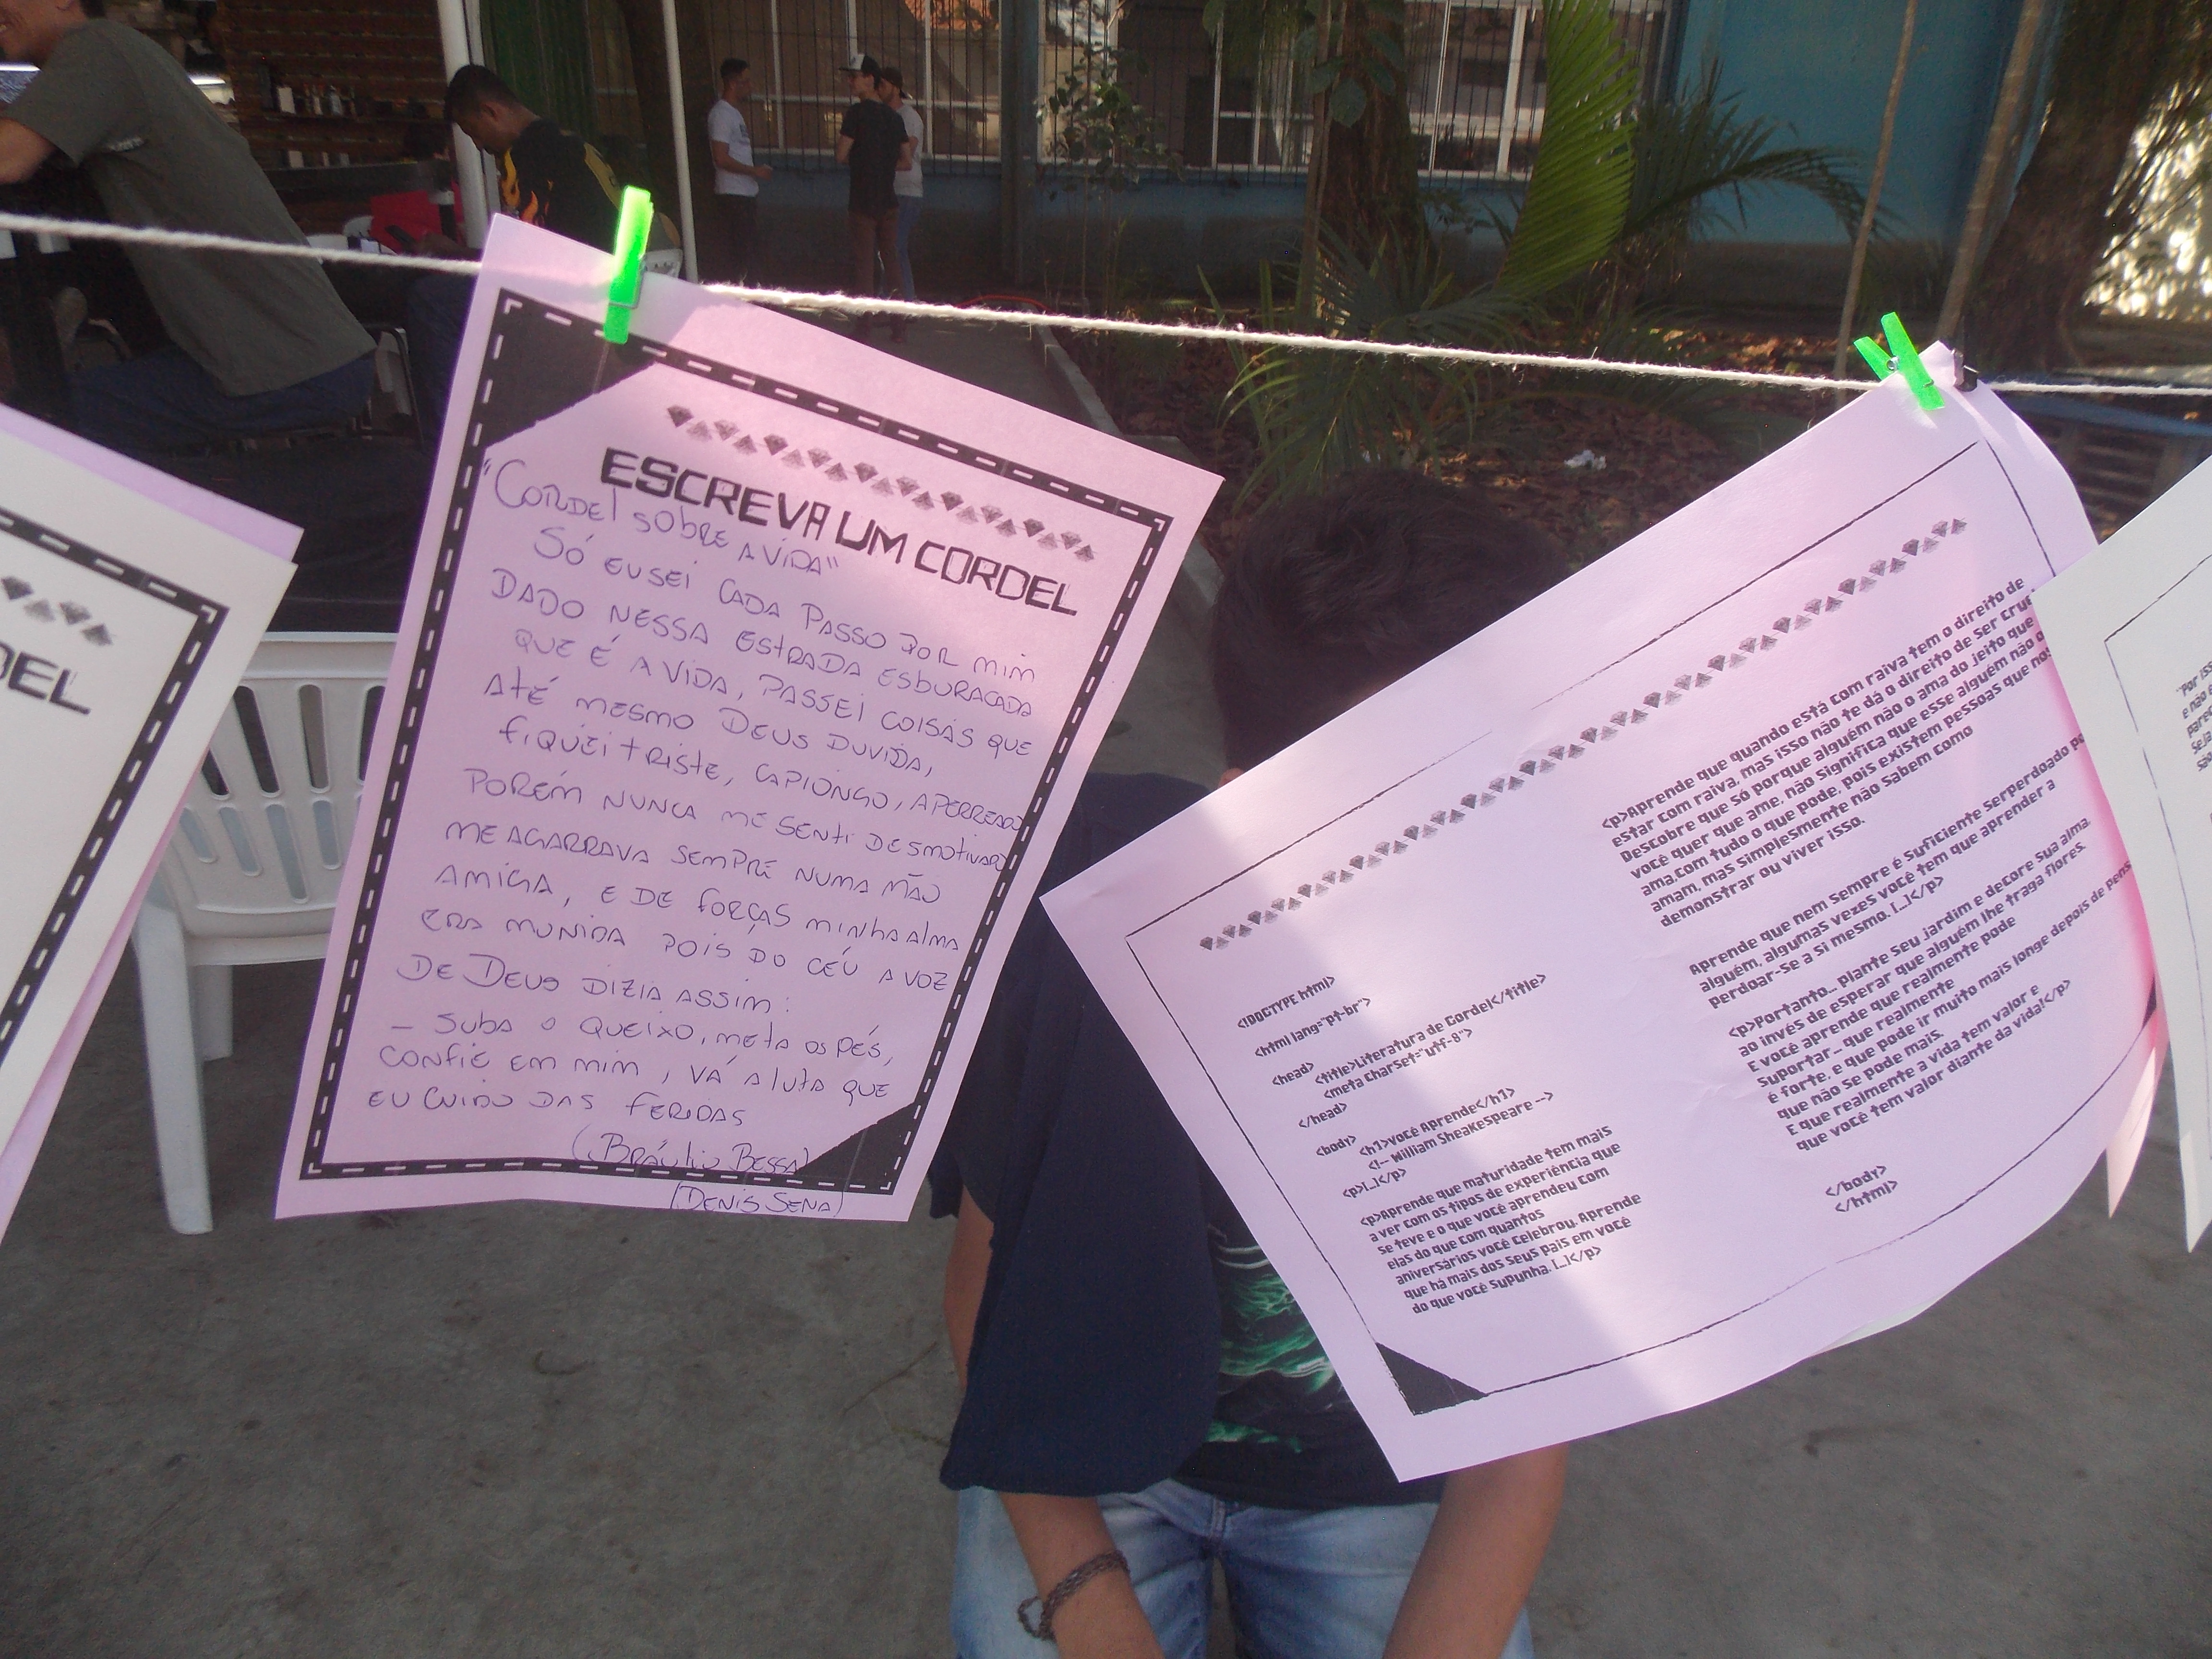 DEL
ESCREVA UM CORDEL
"CORDEL SOBRE A VIDA"
SÓ EU SEI CADA PASSO POR MIM
DADO NESSA ESTRADA ESBURACADA
QUE É A VIDA, PASSEI COISAS QUE
ATÉ MESMO DEUS DUVIDA,
FIQUEI TRISTE, CAPIONGO, APERREADO
PORÉM NUNCA ME SENTI DESMOTIVADO
ME AGARRAVA SEMPRE NUMA MÃO
AMIGA, E DE FORÇAS MINHA ALMA
ERA MUNIDA POIS DO CÉU A VOZ
DE DEUS DIZIA ASSIM:
— SUBA O QUEIXO, META OS PÉS,
CONFIE EM MIM, VÁ A LUTA QUE
EU CUIDO DAS FERIDAS
(BRÁULIO BESSA)
(DENIS SENA)
<!DOCTYPE html>
<html lang="pt-br">
<head>
<title>Literatura de Cordel</title>
<meta CharSet="utf-8">
</head>
<body>
<h1>VOCÊ Aprende</h1>
<!-- William SheaKeSpeare -->
<p>[...]</p>
<p>Aprende que maturidade tem mais
a ver com os tipos de experiência que
se teve e o que você aprendeu com
elas do que com quantos
aniversários você celebrou. Aprende
que há mais dos seus pais em você
do que você supunha. [...]</p>
<p>Aprende que quando está com raiva tem o direito de
estar com raiva, mas isso não te dá o direito de ser crue
Descobre que só porque alguém não o ama do jeito que
você quer que ame, não significa que esse alguém não o
ama,com tudo o que pode, pois existem pessoas que nos
amam, mas simplesmente não Sabem como
demonstrar ou viver isso.
Aprende que nem sempre é suficiente serperdoado po
alguém, algumas vezes você tem que aprender a
perdoar-se a si mesmo. [...]</p>
<p>Portanto... plante seu jardim e decore sua alma,
ao invés de esperar que alguém lhe traga flores.
E você aprende que realmente pode
suportar... que realmente
é forte, e que pode ir muito mais longe depois de pens
que não se pode mais.
E que realmente a vida tem valor e
que você tem valor diante da vida!</p>
</body>
</html>
"Por iss
e não é